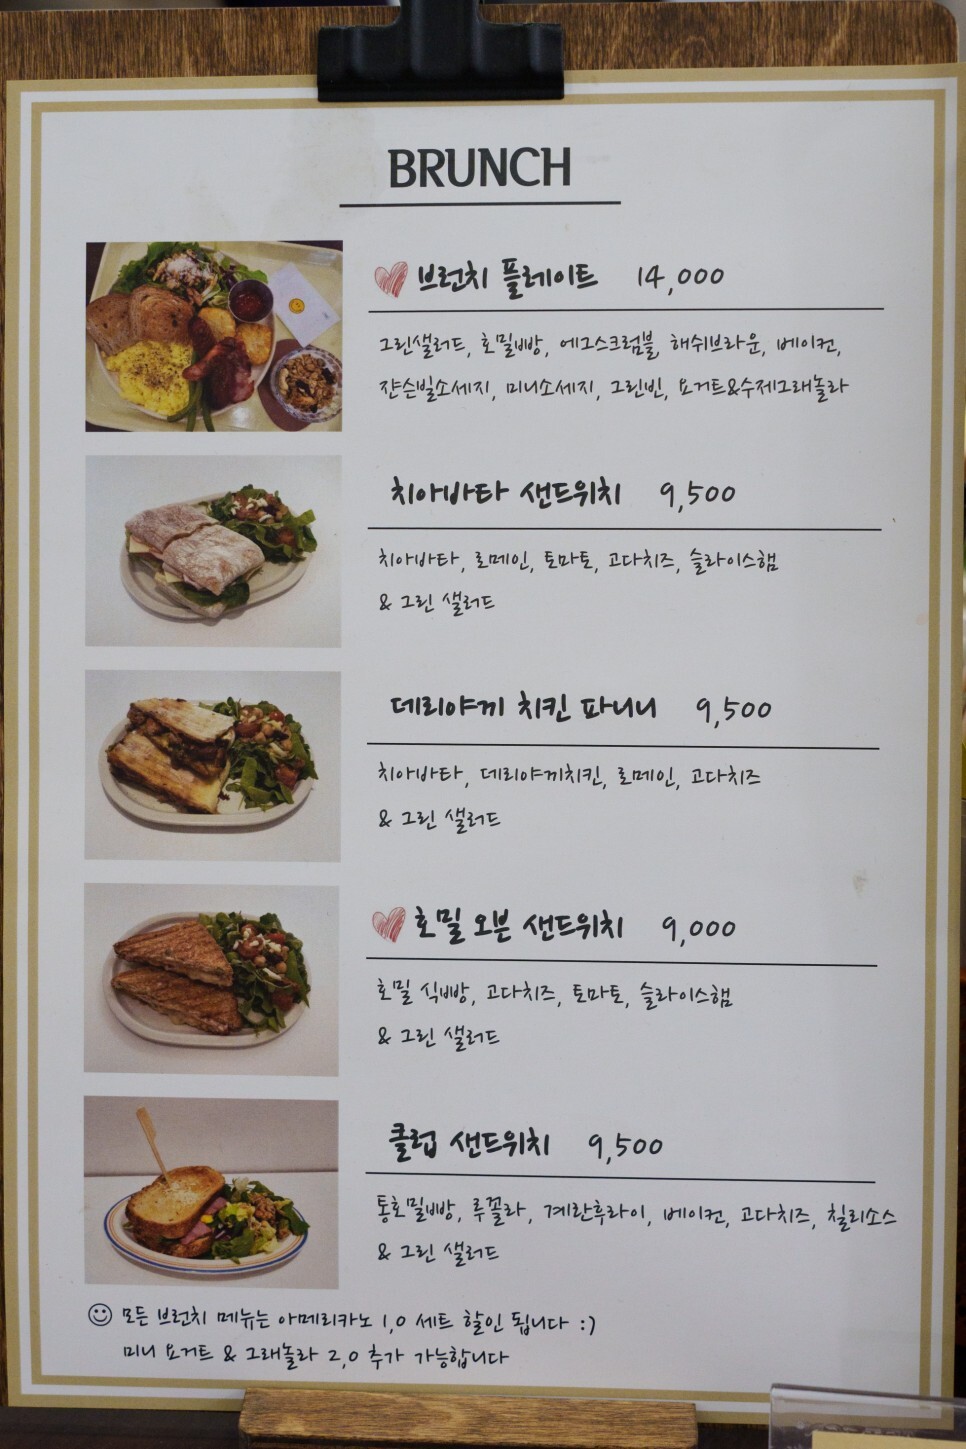 BRUNCH
브런치 플레이트 14,000
그린샐러드, 호밀빵, 에그스크럼블, 해쉬브라운, 베이컨,
쟌슨빌소세지, 미니소세지, 그린빈, 요거트&수제그래놀라
치아바타 샌드위치 9,500
치아바타, 로메인, 토마토, 고다치즈, 슬라이스햄
& 그린 샐러드
데리야끼 치킨 파니니 9,500
치아바타, 데리야끼치킨, 로메인, 고다치즈
& 그린 샐러드
호밀 오븐 샌드위치 9,000
호밀 식빵, 고다치즈, 토마토, 슬라이스햄
& 그린 샐러드
클럽 샌드위치 9,500
통호밀빵, 루꼴라, 계란후라이, 베이컨, 고다치즈, 칠리소스
& 그린 샐러드
모든 브런치 메뉴는 아메리카노 1,0 세트 할인 됩니다 :)
미니 요거트 & 그래놀라 2,0 추가 가능합니다